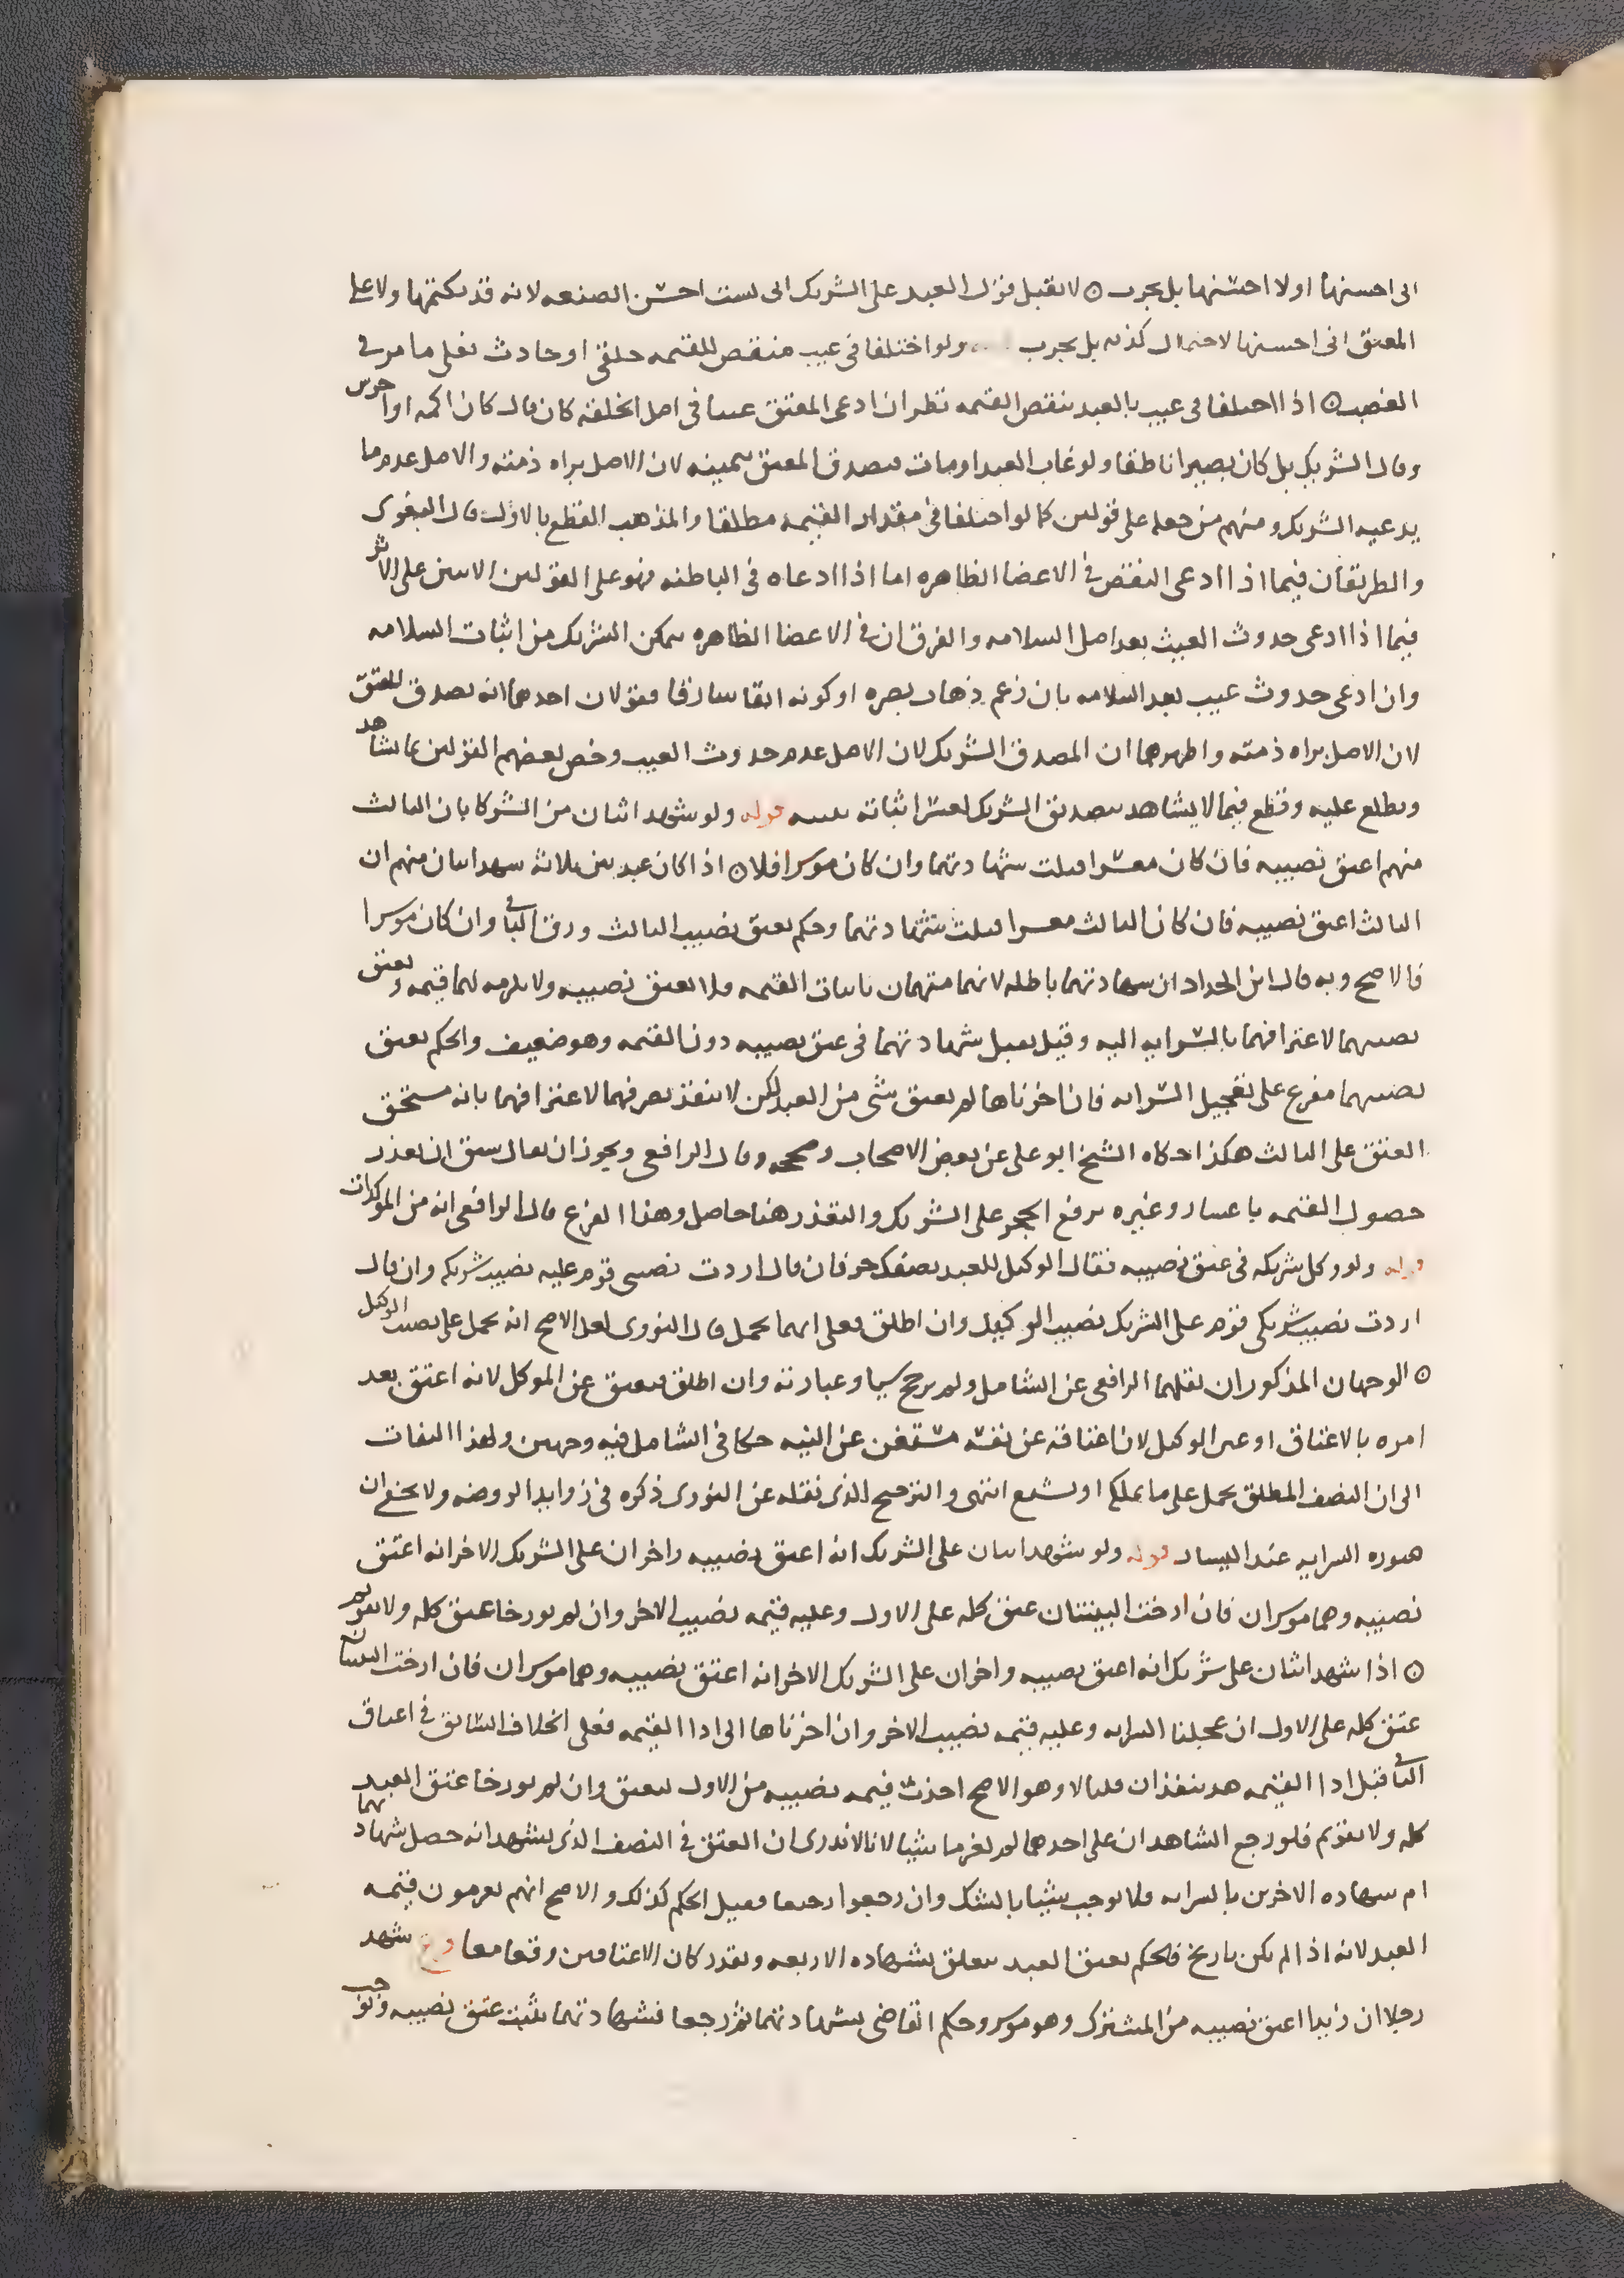 انى احسنها او لا احسنها بل يجرب ⊙ لا يقبل قول العبد على الشريك انى لست احسن الصنعه لانه قد يكتمها ولا على
المعتق انى احسنها لاحتمال كذبه بل يجرب ولو اختلفا فى عيب منقص للقيمه خلقى او حادث فعلى ما مر فى
الغصب ⊙ اذا اختلفا فى عيب بالعبد ينقص القيمه نظر ان ادعى المعتق عيبا فى اصل الخلقه كان قال كان اكمه او اخرس
وقال الشريك بل كان بصيرا ناطقا ولو غاب العبد او مات فيصدق المعتق بيمينه لان الاصل براه ذمته والاصل عدم ما
يدعيه الشريك ومنهم من جعله على قولين كما لو اختلفا فى مقدار القيمه مطلقا والمذهب القطع بالاول قال البغوى
والطريقان فيما اذا ادعى النقص فى الاعضا الظاهره اما اذا ادعاه فى الباطنه فهو على القولين الاتيين على الاثر
فيما اذا ادعى حدوث العيب بعد اصل السلامه والفرق ان فى الاعضا الظاهره يمكن الشريك من اثبات السلامه
وان ادعى حدوث عيب بعد السلامه بان زعم ذهاب بصره او كونه ابقا سارقا فقولان احدهما انه يصدق المعتق
لان الاصل براه ذمته واظهرهما ان المصدق الشريك لان الاصل عدم حدوث العيب وخص بعضهم القولين بما يشاهد
ويطلع عليه وقطع فيما لا يشاهد بتصديق الشريك لعسر اثباته ببينه قوله ولو شهد اثنان من الشركا بان الثالث
منهم اعتق نصيبه فان كان معسرا قبلت شهادتهما وان كان موسرا فلا ⊙ اذا كان عبد بين ثلاثه شهد اثنان منهم ان
الثالث اعتق نصيبه فان كان الثالث معسرا قبلت شهادتهما وحكم بعتق نصيب الثالث ورق الباقى وان كان موسرا
فالاصح وبه قال ابن الحداد ان شهادتهما باطله لانهما متهمان باثبات القيمه فلا يعتق نصيبه ولا يلزمه لهما قيمه ويعتق
نصيبهما لاعترافهما بالسرايه اليه وقيل تقبل شهادتهما فى عتق نصيبه دون القيمه وهو ضعيف والحكم بعتق
نصيبهما مفرع على تعجيل السرايه فان اخرناها لم يعتق شى من العبد لكن لا ينفذ تصرفهما لاعترافهما بانه مستحق
العتق على الثالث هكذا حكاه الشيخ ابو على عن بعض الاصحاب وصححه وقال الرافعى ويجوز ان يقال سبق ان تعذر
حصول القيمه باعسار وغيره يرفع الحجر على الشريك والتعذر هنا حاصل وهذا الفرع قال الرافعى انه من المولدات
قوله ولو وكل شريكه فى عتق نصيبه فقال الوكيل للعبد نصفك حر فان قال اردت نصيبى قوم عليه نصيب شريكه وان قال
اردت نصيب شريكى قوم على الشريك نصيب الوكيل وان اطلق فعلى ايهما يحمل قال النووى لعل الاصح انه يحمل على نصيب الوكيل
⊙ الوجهان المذكوران نقلهما الرافعى عن الشامل ولم يرجح شيا وعبارته وان اطلق فيعتق عن الموكل لانه اعتق بعد
امره بالاعتاق او عن الوكيل لان اعتاقه عن نفسه مستغن عن النيه حكا فى الشامل فيه وجهين ولهذا التفات
الى ان النصف المطلق يحمل على ما يملكه او يشيع انتهى والترجيح الذى نقله عن النووى ذكره فى زوايد الروضه ولا يخفى ان
صوره السرايه عند اليسار قوله ولو شهد اثنان على الشريك انه اعتق نصيبه واخران على الشريك الاخر انه اعتق
نصيبه وهما موسران فان ارخت البينتان عتق كله على الاول وعليه قيمه نصيب الاخر وان لم يورخا عتق كله ولا تقويم
⊙ اذا شهد اثنان على شريك انه اعتق نصيبه واخران على الشريك الاخر انه اعتق نصيبه وهما موسران فان ارخت البينتان
عتق كله على الاول ان عجلنا السرايه وعليه قيمه نصيب الاخر وان اخرناها الى ادا القيمه فعلى الخلاف السابق فى اعتاق
الثانى قبل ادا القيمه هل ينفذ ان قلنا لا وهو الاصح اخذت قيمه نصيبه من الاول ليعتق وان لم يورخا عتق العبد
كله ولا تقويم فلو رجع الشاهدان على احدهما لم يغرما شيا لانا لا ندرى ان العتق فى النصف الذى يشهد انه حصل بشهادتهما
ام بشهاده الاخرين بالسرايه فلا نوجب شيا بالشك وان رجعوا جميعا فقيل الحكم كذلك والاصح انهم يغرمون قيمه
العبد لانه اذا لم يكن تاريخ فالحكم بعتق العبد معلق بشهاده الاربعه ويقدر كان الاعتاقين وقعا معا فرع شهد
رجلان ان زيدا اعتق نصيبه من المشترك وهو موسر وحكم القاضى بشهادتهما ثم رجعا فشهادتهما تثبت عتق نصيبه وتوجب